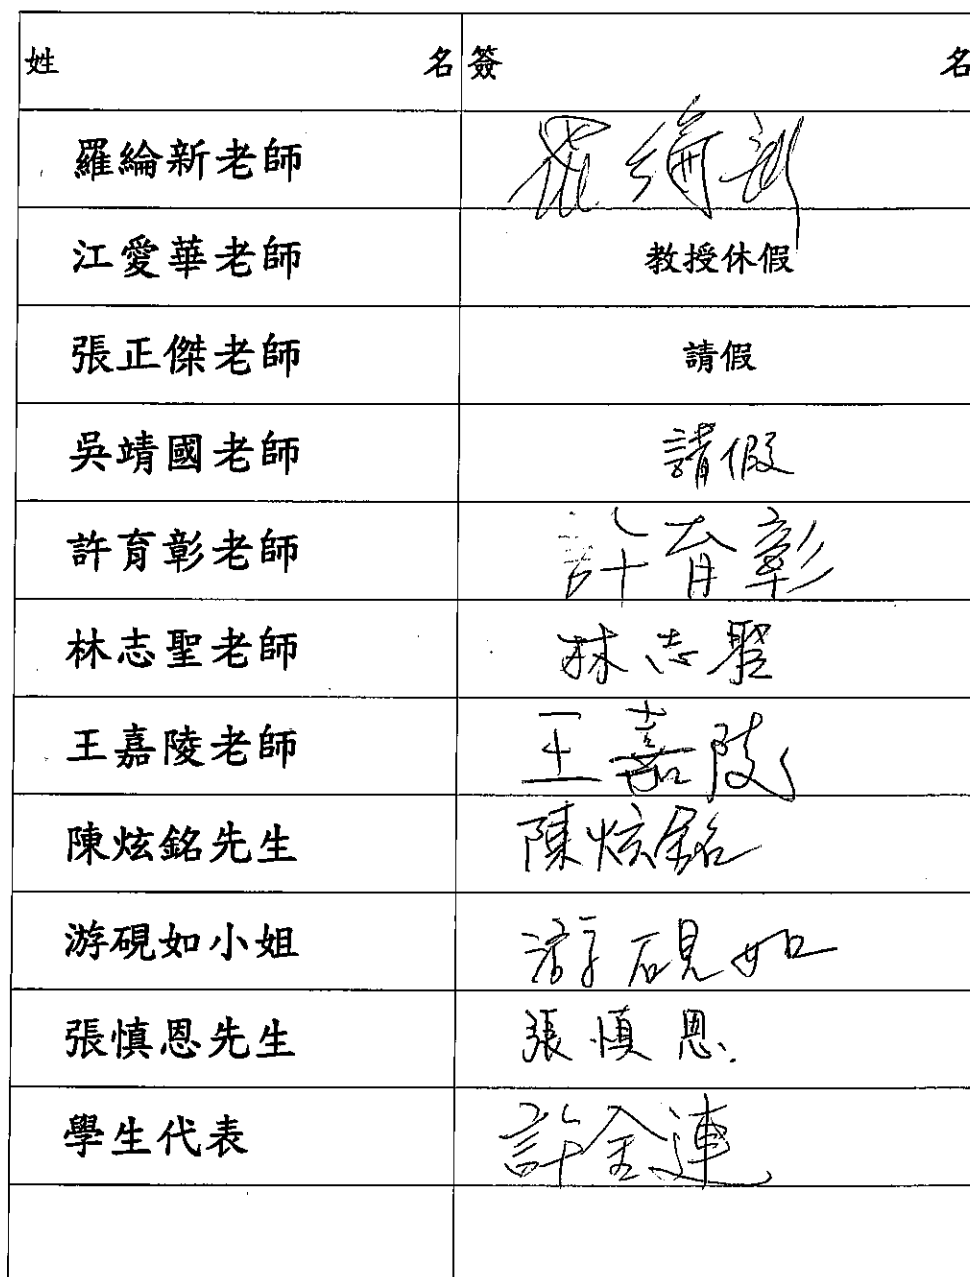 姓名 簽名
羅綸新老師 羅綸新
江愛華老師 教授休假
張正傑老師 請假
吳靖國老師 請假
許育彰老師 許育彰
林志聖老師 林志聖
王嘉陵老師 王嘉陵
陳炫銘先生 陳炫銘
游硯如小姐 游硯如
張慎恩先生 張慎恩
學生代表 許全連